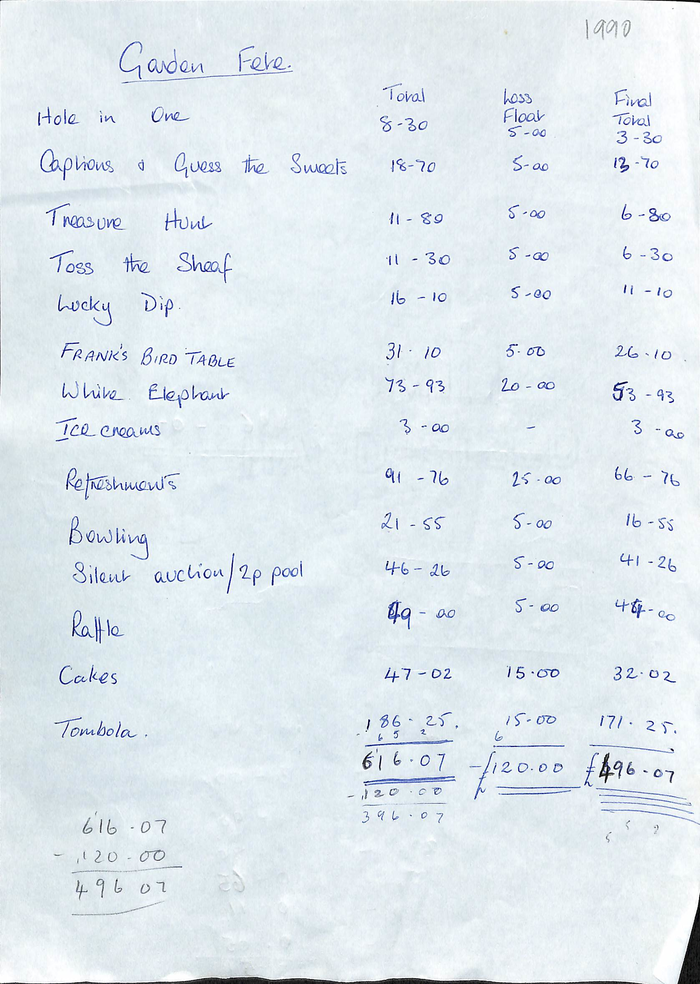 1990
Garden Fete.
Total Less Float Final Total
Hole in One 8-30 5-00 3-30
Captions & Guess the Sweets 18-70 5-00 13-70
Treasure Hunt 11-80 5-00 6-80
Toss the Sheaf 11-30 5-00 6-30
Lucky Dip. 16-10 5-00 11-10
FRANK'S BIRD TABLE 31.10 5.00 26.10
White Elephant 73-93 20-00 53-93
Ice creams 3-00 - 3-00
Refreshments 91-76 25.00 66-76
Bowling 21-55 5-00 16-55
Silent auction/2p pool 46-26 5-00 41-26
Raffle 49-00 5-00 44-00
Cakes 47-02 15.00 32.02
Tombola. 186.25. 15-00 171.25.
6 5 2 6
616.07 -£120.00 £496.07
-120.00
396.07
616.07
-120.00
496 07